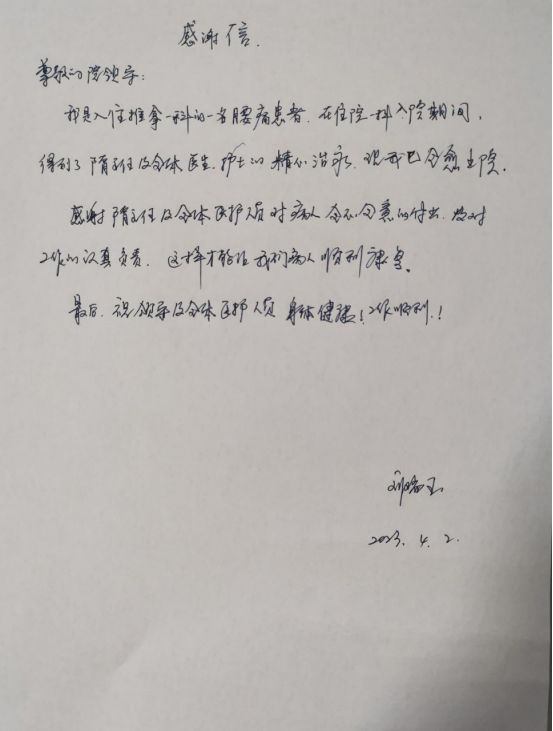 感谢信.
尊敬的院领导:
我是入住推拿一科的一名腰痛患者.在住院一科入院期间,
得到了隋主任及全体医生.护士的精心治疗,现我已全愈出院.
感谢隋主任及全体医护人员对病人全心全意的付出.及对
工作的认真负责.这样才能让我们病人顺利康复.
最后.祝领导及全体医护人员身体健康!工作顺利.!
2023.4.2.